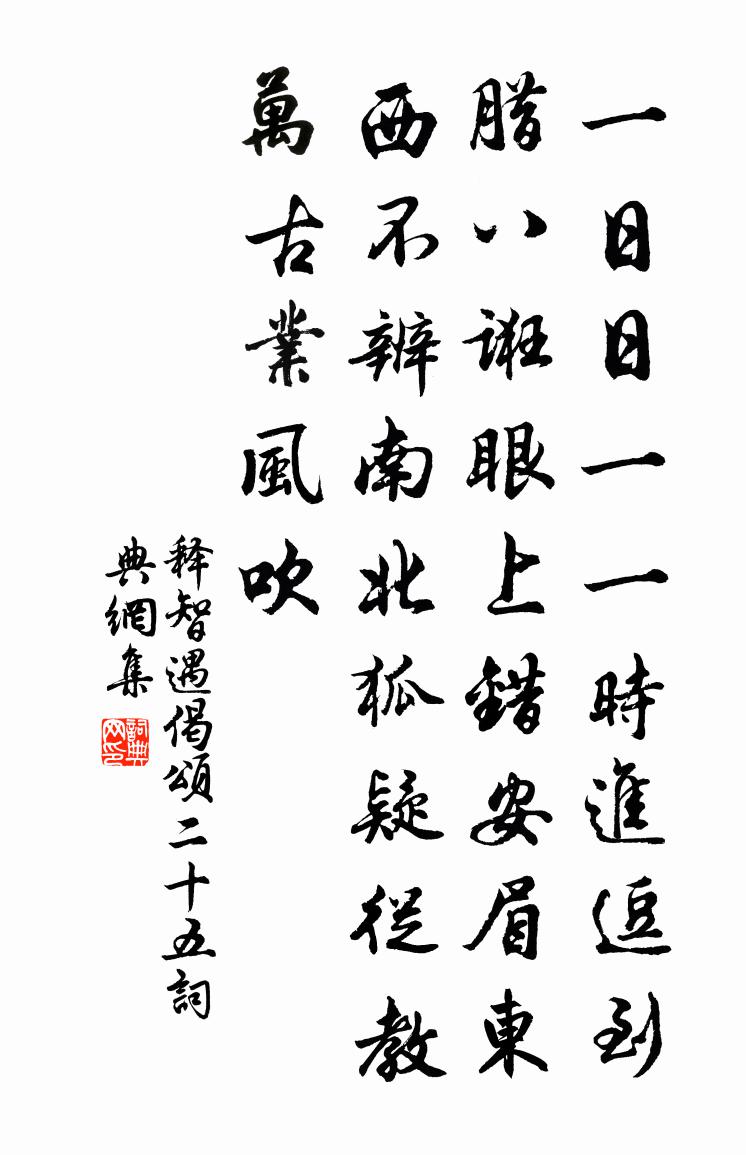 一日日一一時進逗到
腊八誑眼上錯安眉東
西不辨南北狐疑從教
萬古業風吹
释智遇偈頌二十五詞
典網集
詞典网印